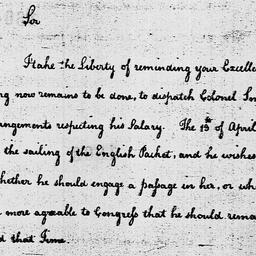 Sir
I take the Liberty of reminding your Excelle
ng now remains to be done, to dispatch Colonel Sm
angements respecting his Salary. The 15th of April
the sailing of the English Packet, and he wishes
hether he should engage a passage in her, or wh
more agreable to Congress that he should rema
d that Time.